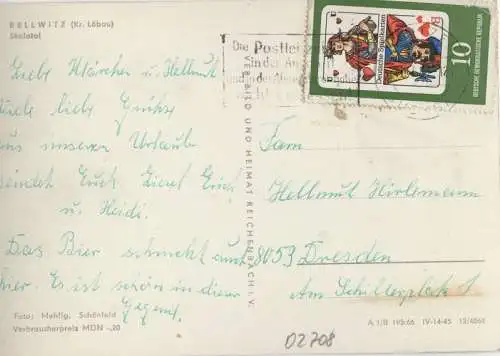 BELLWITZ (Kr. Löbau)
Skalatal
Liebe Klärchen u Hellmut
Viele liebe Grüße
aus unserem Urlaube
sendet Euch
u. Heidi.
Das Bier schmeckt auch
hier. Es ist schön in dieser
Gegend.
Foto: Mehlig, Schönfeld
Verbraucherpreis MDN -,20
VEB BILD UND HEIMAT REICHENBACH I. V.
Die Postleitzahl
in der
Deutsche Spielkarten
DEUTSCHE DEMOKRATISCHE REPUBLIK
10
Fam
Hellmut
8053 Dresden
Am Schillerplatz 1
A 1/B 195/66 IV-14-45
02708